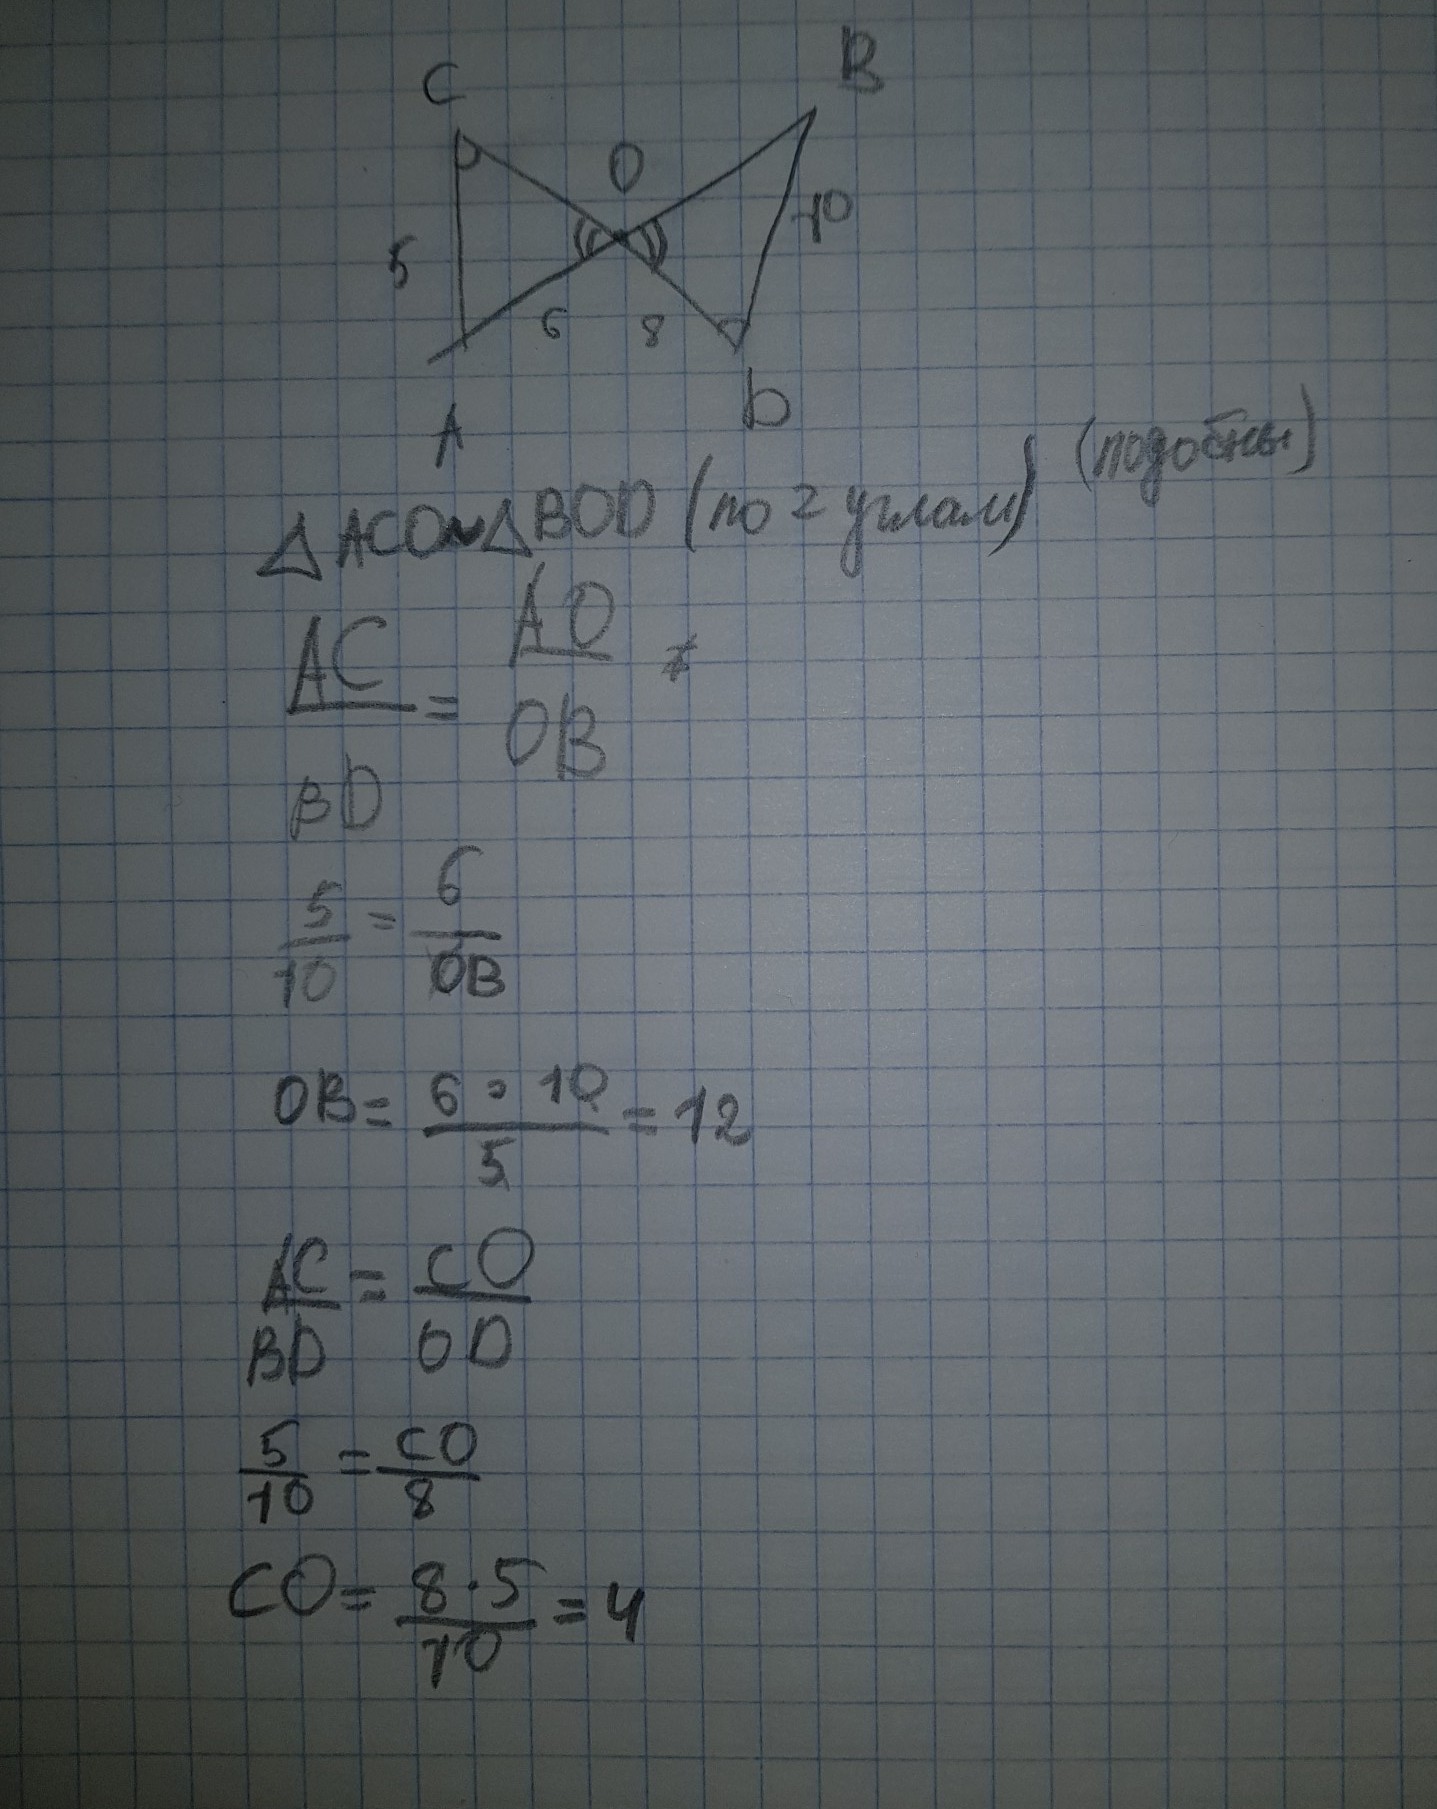 C
B
O
5
10
6
8
A
D
(подобны)
△ACO~△BOD (по 2 углам)
AC/BD = AO/OB
5/10 = 6/OB
OB = 6 · 10/5 = 12
AC/BD = CO/OD
5/10 = CO/8
CO = 8·5/10 = 4